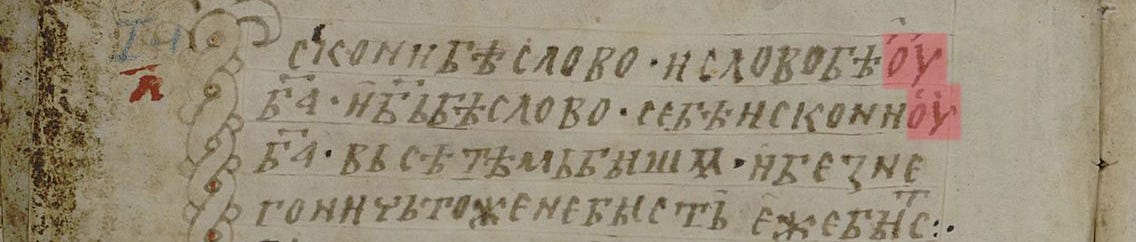 скони бѣ слово · и слово бѣ оу
б҃а · и б҃ъ бѣ слово · се бѣ искони оу
б҃а · вьсѣ тѣмь быше · и безне
го ничьтоже не быстъ еже быс҃ :·